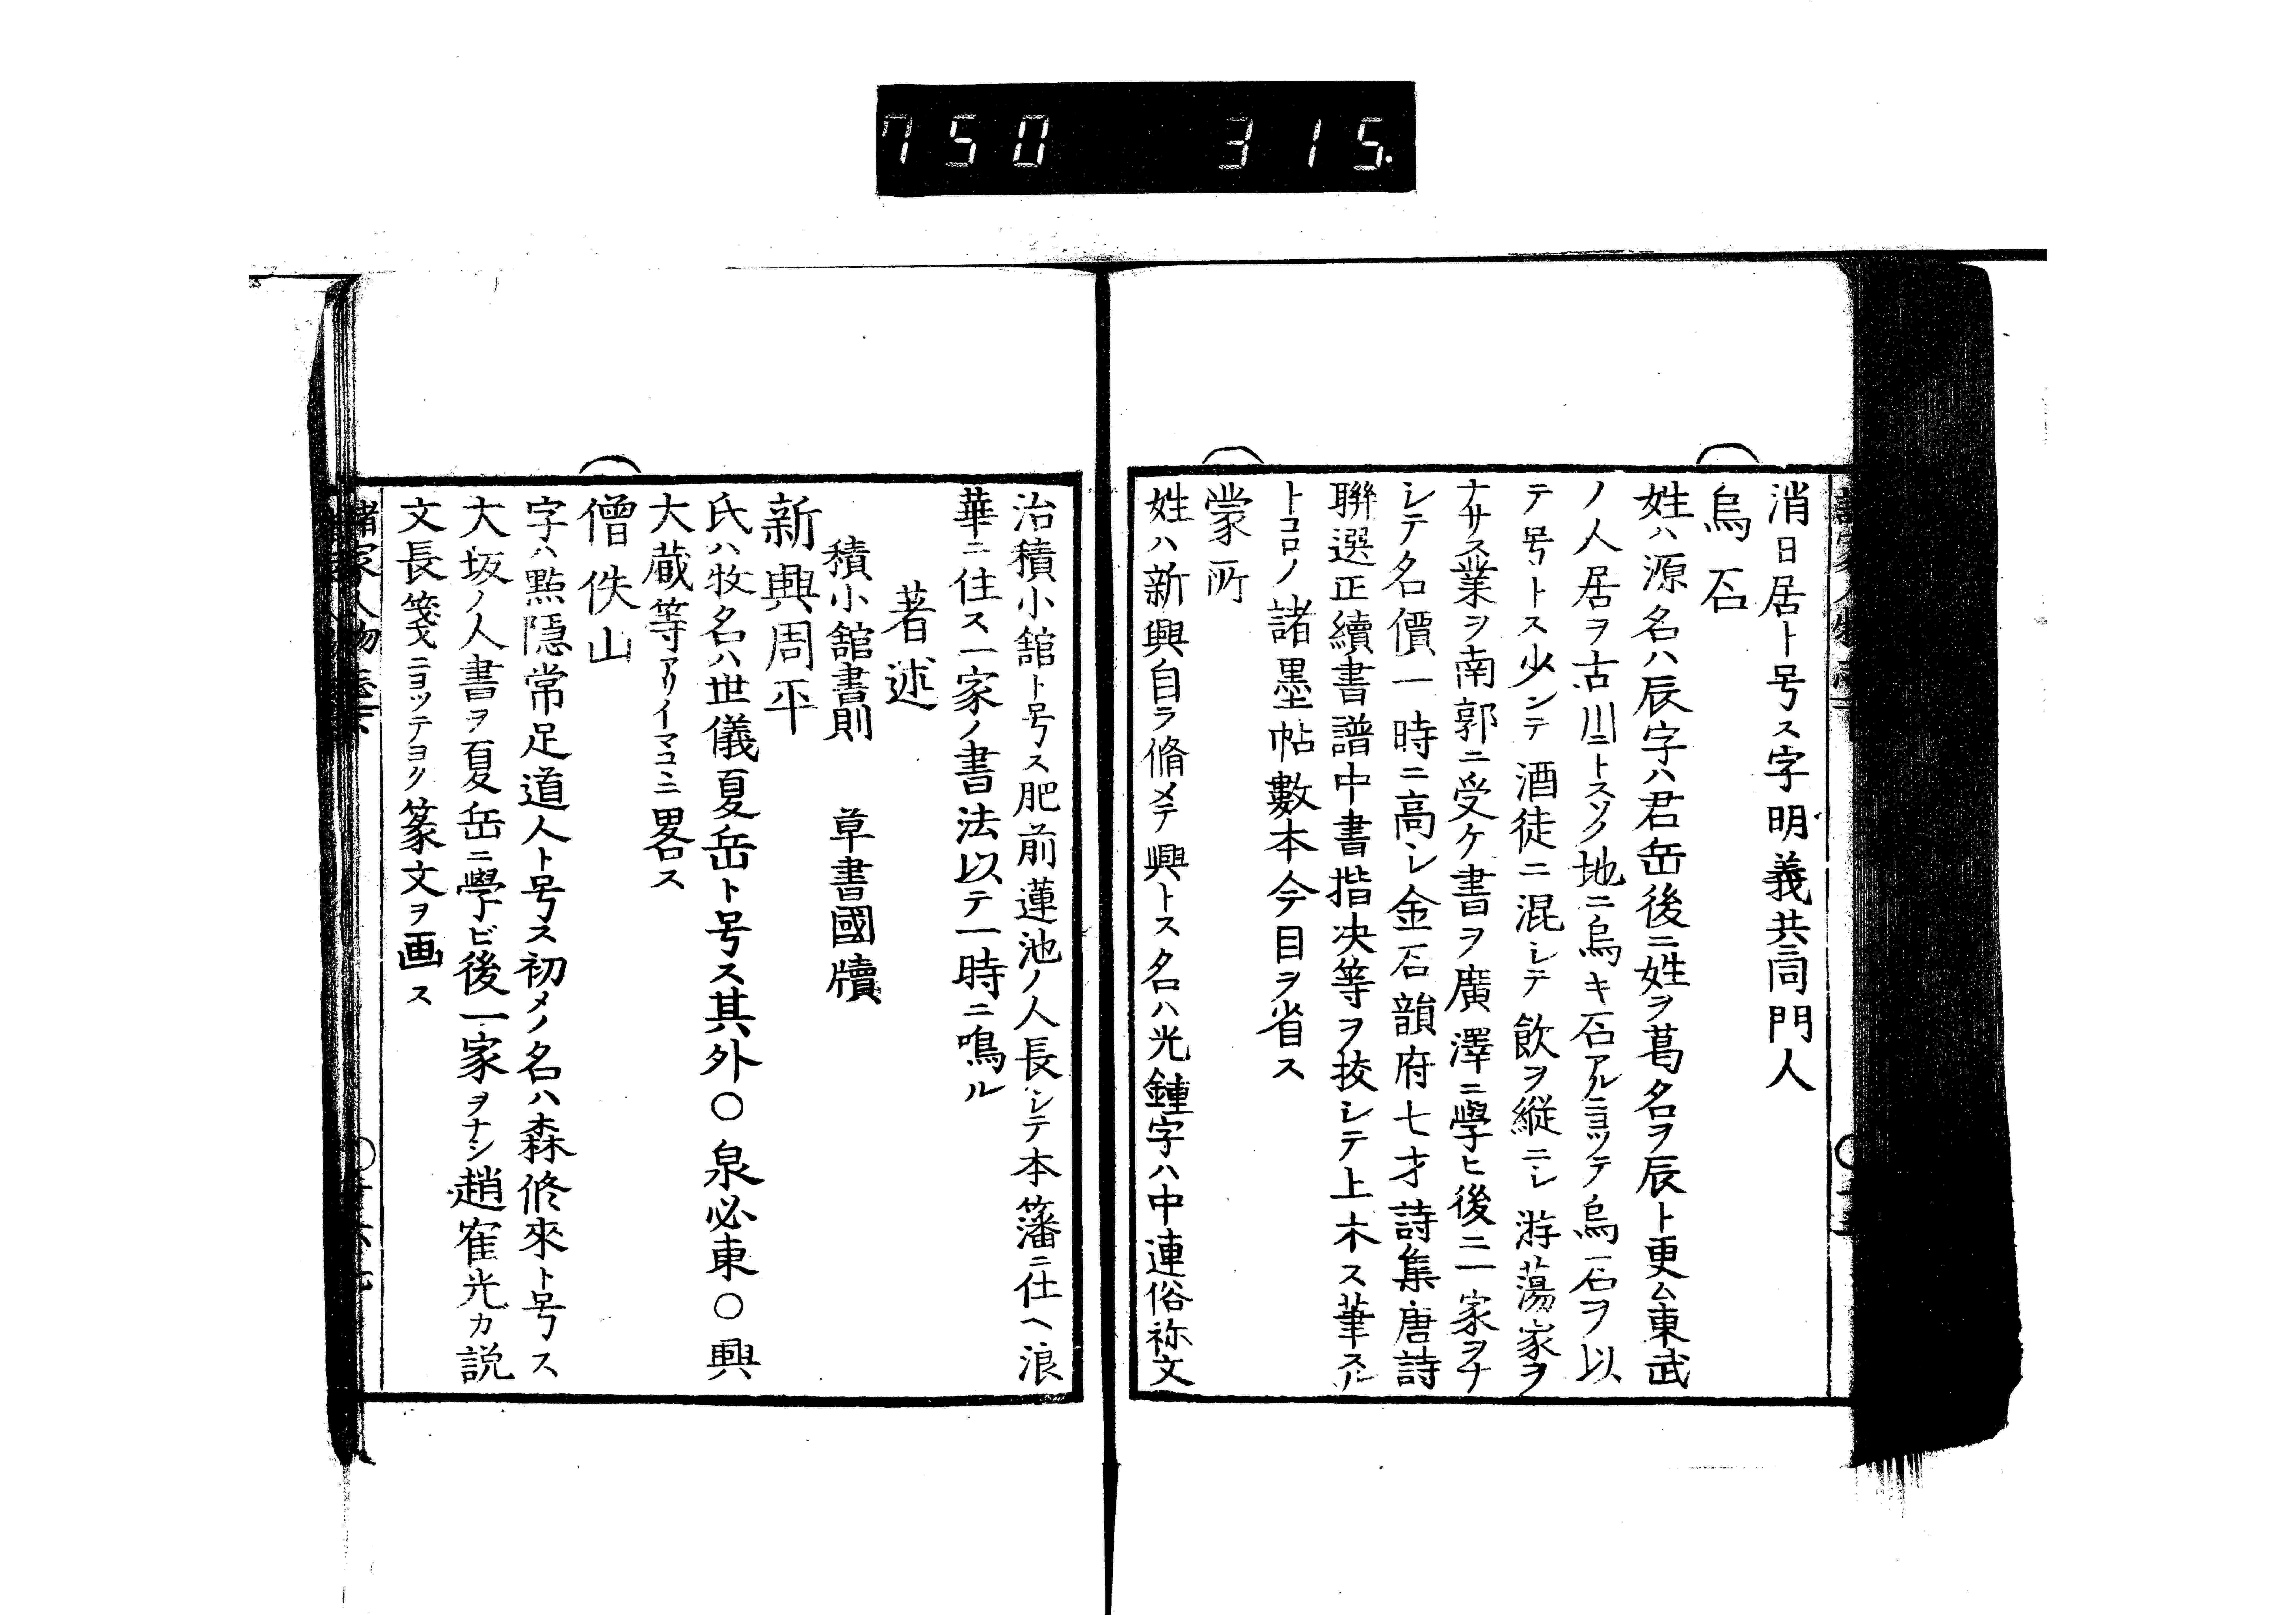 750 315.
消日居ト号ス字明義共同門人
烏石
姓ハ源名ハ辰字ハ君岳後ニ姓ヲ葛名ヲ辰ト更ム東武
ノ人居ヲ古川ニトスソノ地ニ烏キ石アルニヨツテ烏石ヲ以
テ号トス少ンテ酒徒ニ混シテ飲ヲ縦ニシ游蕩家ヲ
ナサス業ヲ南郭ニ受ケ書ヲ廣澤ニ學ヒ後ニ一家ヲナ
シテ名價一時ニ高シ金石韻府七才詩集唐詩
聯選正續書譜中書楷决等ヲ挍シテ上木ス筆スル
トコロノ諸墨帖數本今目ヲ省ス
蒙所
姓ハ新興自ラ脩メテ興トス名ハ光鍾字ハ中連俗称文
治積小舘ト号ス肥前蓮池ノ人長シテ本藩ニ仕ヘ浪
華ニ住ス一家ノ書法以テ一時ニ鳴ル
著述
積小舘書則 草書國牘
新興周平
氏ハ牧名ハ世儀夏岳ト号ス其外○泉必東○興
大蔵等アリイマコヽニ畧ス
僧佚山
字ハ點隠常足道人ト号ス初メノ名ハ森修來ト号ス
大坂ノ人書ヲ夏岳ニ學ビ後一家ヲナシ趙崔光カ説
文長箋ニヨツテヨク篆文ヲ画ス
諸家人物志下